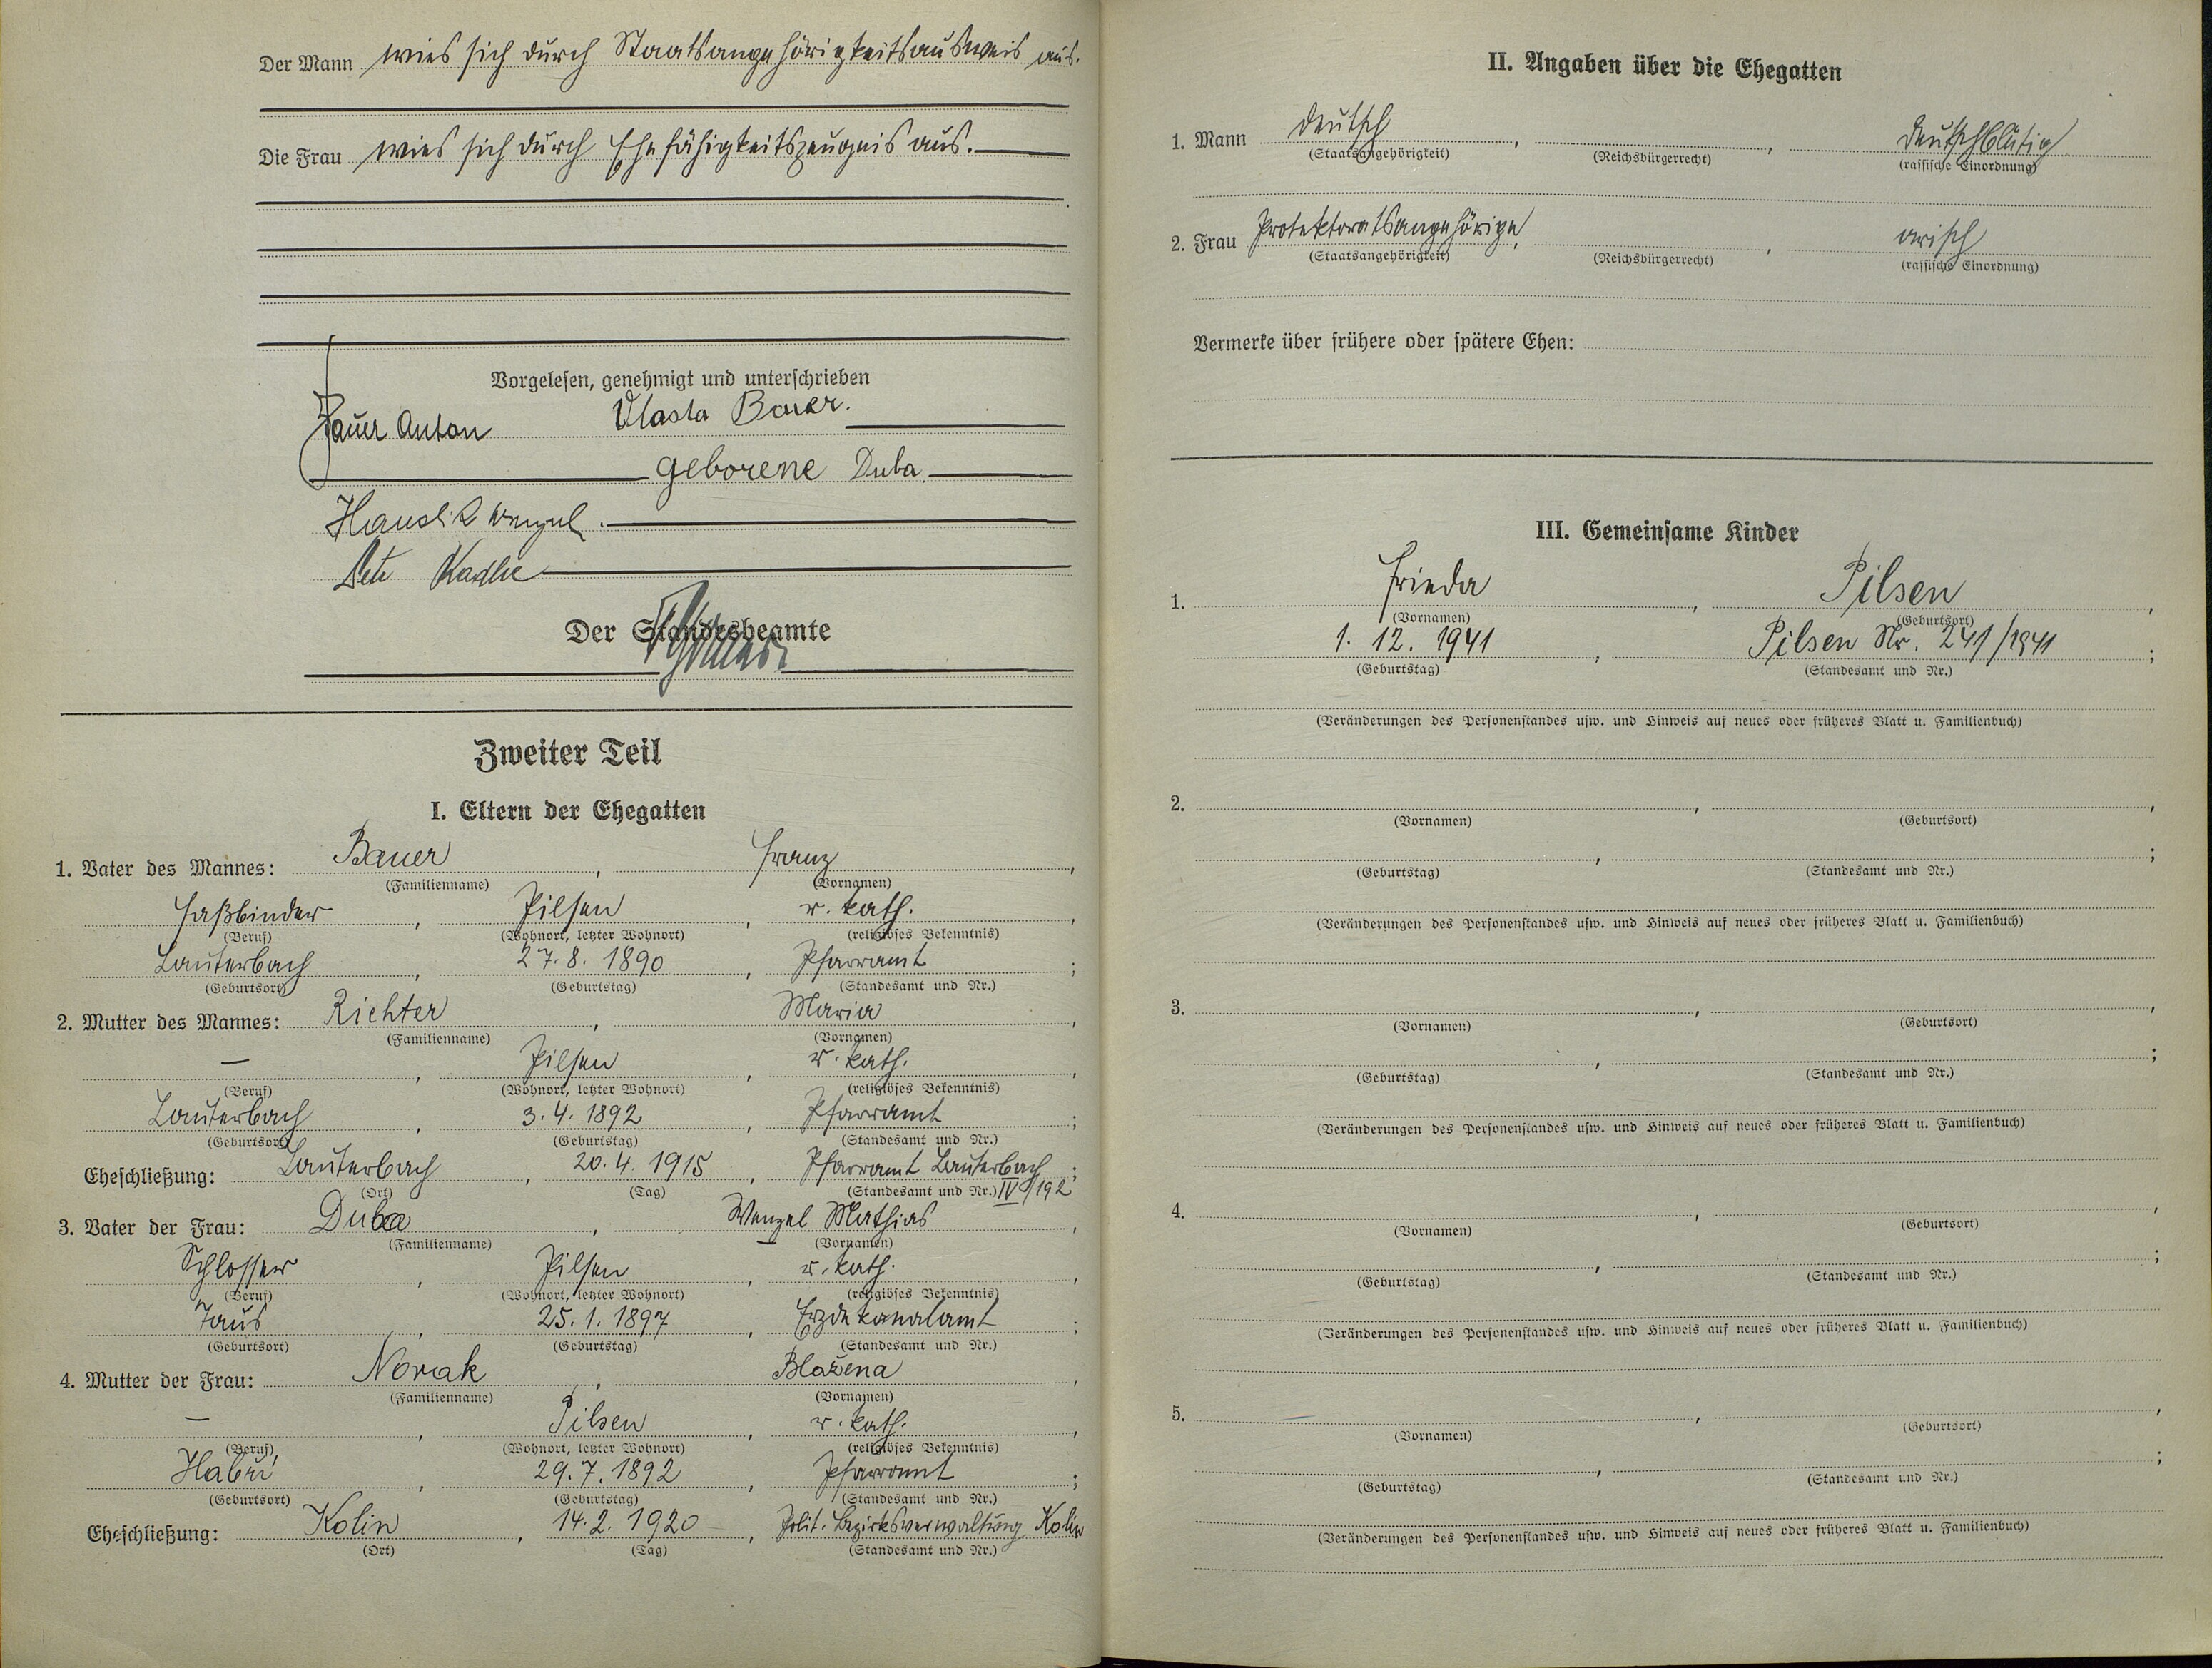 Der Mann wies sich durch Staatsangehörigkeitsausweis aus.
Die Frau wies sich durch Ehefähigkeitszeugnis aus.
Vorgelesen, genehmigt und unterschrieben
Bauer Anton Vlasta Bauer.
geborene Duba
Wenzel
Kadlec
Der Standesbeamte
Zweiter Teil
I. Eltern der Ehegatten
1. Vater des Mannes: Bauer, Franz,
(Familienname) (Vornamen)
Faßbinder, Pilsen, r. kath.,
(Beruf) (Wohnort, letzter Wohnort) (religiöses Bekenntnis)
Lauterbach, 27.8.1890, Pfarramt;
(Geburtsort) (Geburtstag) (Standesamt und Nr.)
2. Mutter des Mannes: Richter, Maria,
(Familienname) (Vornamen)
—, Pilsen, r. kath.,
(Beruf) (Wohnort, letzter Wohnort) (religiöses Bekenntnis)
Lauterbach, 3.4.1892, Pfarramt;
(Geburtsort) (Geburtstag) (Standesamt und Nr.)
Eheschließung: Lauterbach, 20.4.1915, Pfarramt Lauterbach;
(Ort) (Tag) (Standesamt und Nr.) IV/192
3. Vater der Frau: Duba, Wenzel Mathias,
(Familienname) (Vornamen)
Schlosser, Pilsen, r. kath.,
(Beruf) (Wohnort, letzter Wohnort) (religiöses Bekenntnis)
Taus, 25.1.1897, Erzdekanalamt;
(Geburtsort) (Geburtstag) (Standesamt und Nr.)
4. Mutter der Frau: Novak, Blažena,
(Familienname) (Vornamen)
—, Pilsen, r. kath.,
(Beruf) (Wohnort, letzter Wohnort) (religiöses Bekenntnis)
Habří, 29.7.1892, Pfarramt;
(Geburtsort) (Geburtstag) (Standesamt und Nr.)
Eheschließung: Kolin, 14.2.1920, Polit. Bezirksverwaltung Kolin
(Ort) (Tag) (Standesamt und Nr.)
II. Angaben über die Ehegatten
1. Mann deutsch, , deutschblütig
(Staatsangehörigkeit) (Reichsbürgerrecht) (rassische Einordnung)
2. Frau Protektoratsangehörige, , arisch
(Staatsangehörigkeit) (Reichsbürgerrecht) (rassische Einordnung)
Vermerke über frühere oder spätere Ehen:
III. Gemeinsame Kinder
1. Frieda, Pilsen,
(Vornamen) (Geburtsort)
1. 12. 1941, Pilsen Nr. 241/1941;
(Geburtstag) (Standesamt und Nr.)
(Veränderungen des Personenstandes usw. und Hinweis auf neues oder früheres Blatt u. Familienbuch)
2. , ,
(Vornamen) (Geburtsort)
, ;
(Geburtstag) (Standesamt und Nr.)
(Veränderungen des Personenstandes usw. und Hinweis auf neues oder früheres Blatt u. Familienbuch)
3. , ,
(Vornamen) (Geburtsort)
, ;
(Geburtstag) (Standesamt und Nr.)
(Veränderungen des Personenstandes usw. und Hinweis auf neues oder früheres Blatt u. Familienbuch)
4. , ,
(Vornamen) (Geburtsort)
, ;
(Geburtstag) (Standesamt und Nr.)
(Veränderungen des Personenstandes usw. und Hinweis auf neues oder früheres Blatt u. Familienbuch)
5. , ,
(Vornamen) (Geburtsort)
, ;
(Geburtstag) (Standesamt und Nr.)
(Veränderungen des Personenstandes usw. und Hinweis auf neues oder früheres Blatt u. Familienbuch)